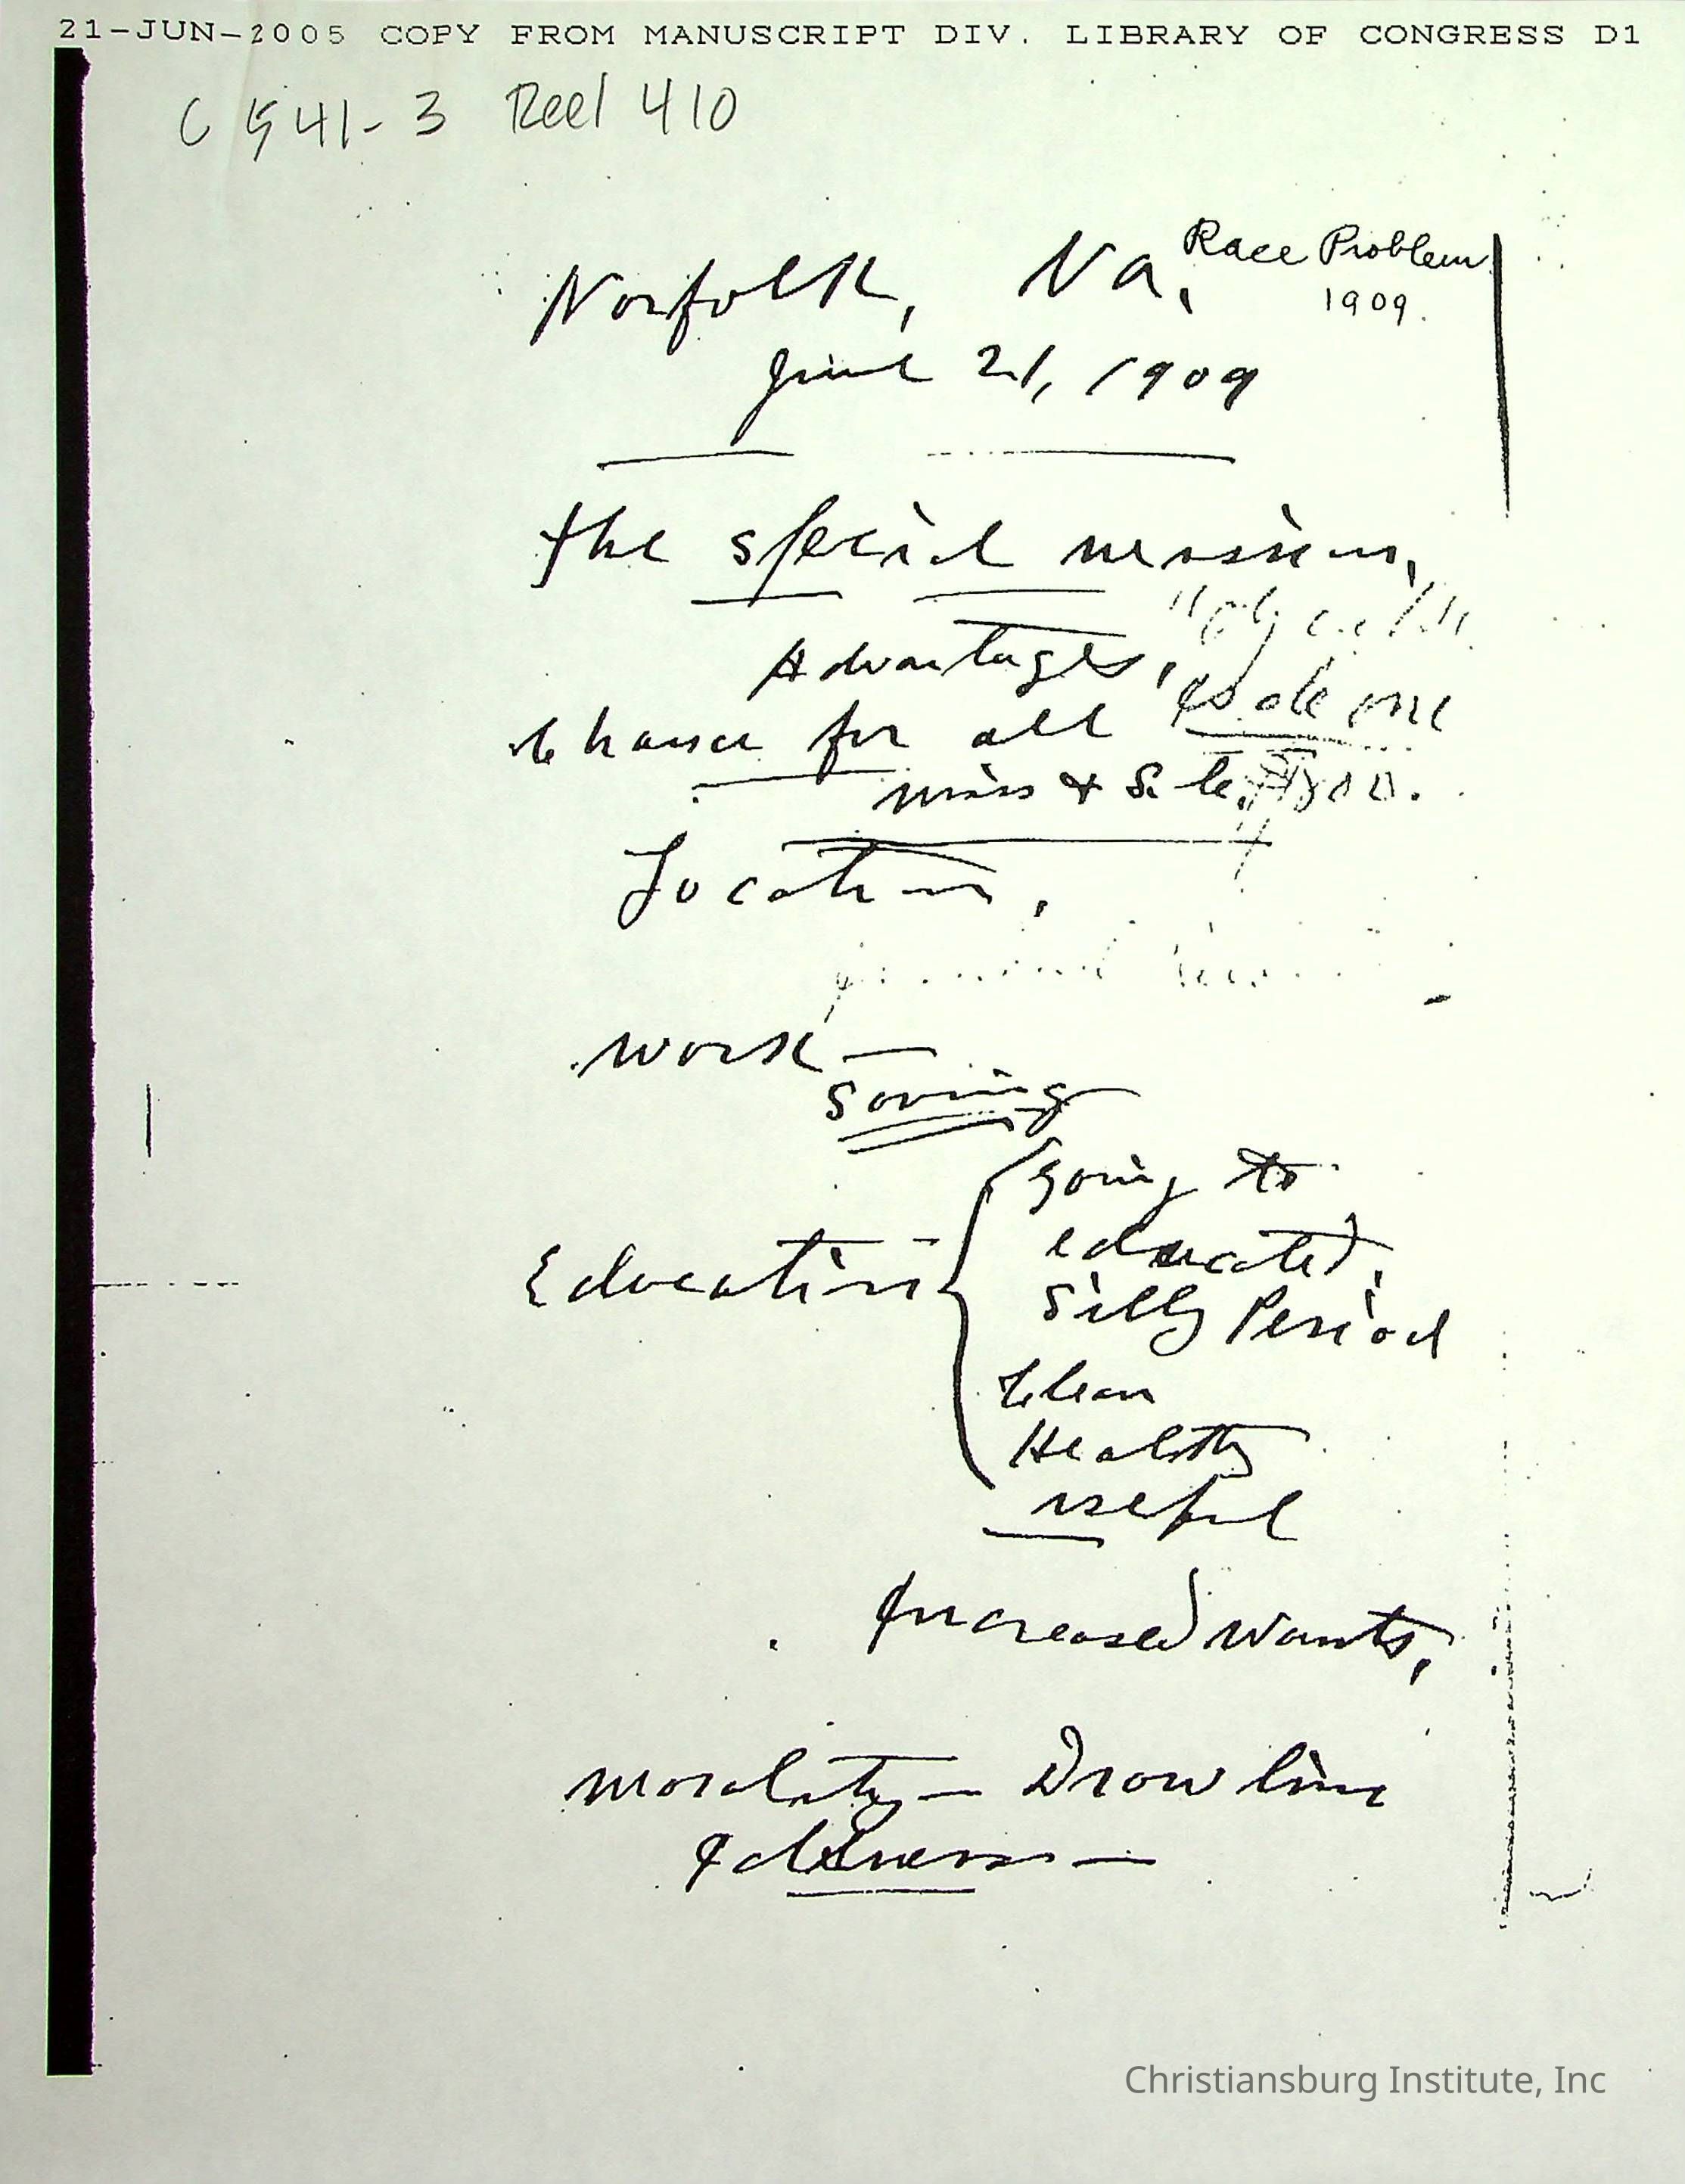 21-JUN-2005 COPY FROM MANUSCRIPT DIV. LIBRARY OF CONGRESS D1
C G 41-3 Reel 410
Race Problem
1909.
Norfolk, Va.
June 21, 1909
The special mission,
Advantages,
Chance for all
miss & S.
Location,
Work —
Saving
Education
going to
educated,
Silly Period
Clean
Healthy
useful
Increased Wants,
Morality — Draw line
Idleness —
Christiansburg Institute, Inc